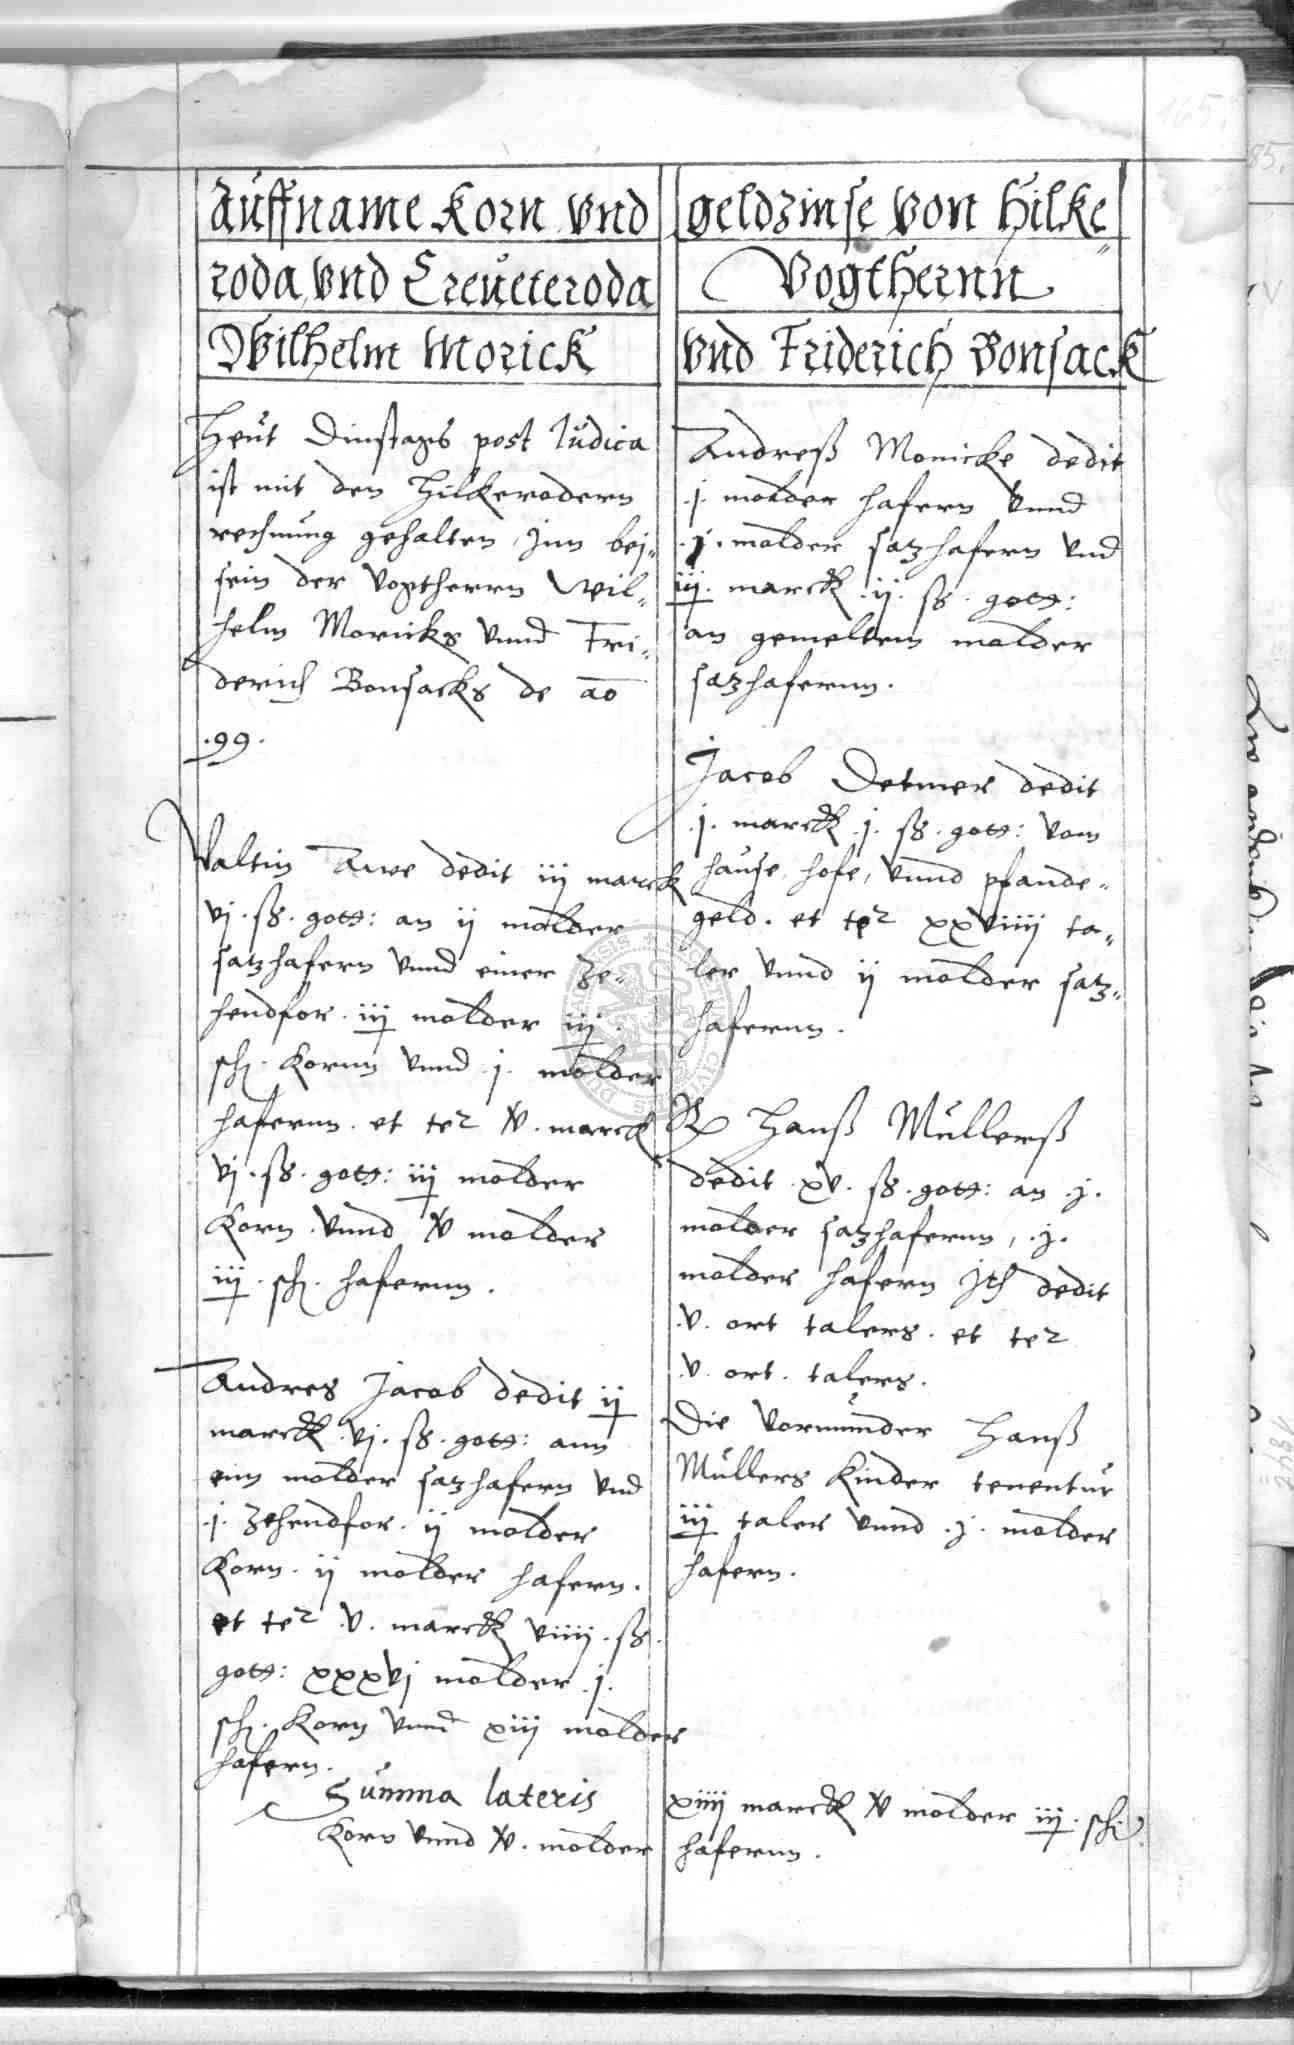 165.
Auffname Korn vnd
roda vnd Creueteroda
Wilhelm Morick
Heut Dinstags post Iudica
ist mit den Hilkerodern
rechnung gehalten, Jnn bei„
sein der Vogtherrn Wil„
helm Moricks vnnd Fri„
derich Bonsacks de ao
.99.
Valtin Awe dedit iij marck
vj . ss . gott: an ij molder
satzhafern vnnd einer Ze„
hendfor . iij molder iij .
sch. Kornn vnnd .j. molder
hafernn . et ter v . marck
vj . ss . gott: iij molder
Korn . vnnd v molder
iij . sch. hafernn .
Andres Jacob dedit ij
marck . vj . ss . gott: ann
ein molder satzhafern vnd
.j. zehendfor . ij molder
Korn . ij molder hafern .
et ter .v. marck viiij . ss .
gott: xxxvj molder .j.
sch. Korn vnnd xiij molder
hafern .
Summa lateris
Korn vnnd v . molder
geldzinse von Hilke„
Vogthernn
vnd Friderich Bonsack
Andreß Moricke dedit
.j. molder hafern vnnd
.j. molder satzhafern vnd
iij . marck .ij. ss . gott:
an gemeltem molder
satzhafernn .
Jacob Detmer dedit
.j. marck .j. ss . gott: vom
hause, hofe, vnnd pfande„
geld . et ter xxviiij ta„
ler vnnd ij molder satz„
hafernn .
Hanß Mullerß
dedit . xv . ss . gott: an .j.
molder satzhafernn, .j.
molder hafern Jth dedit
.v. ort talers . et ter
.v. ort . talers .
Die Vormunder Hanß
Mullers Kinder tenentur
iij taler vnnd .j. molder
hafern .
xiiij marck v molder iij . sch.
hafernn .